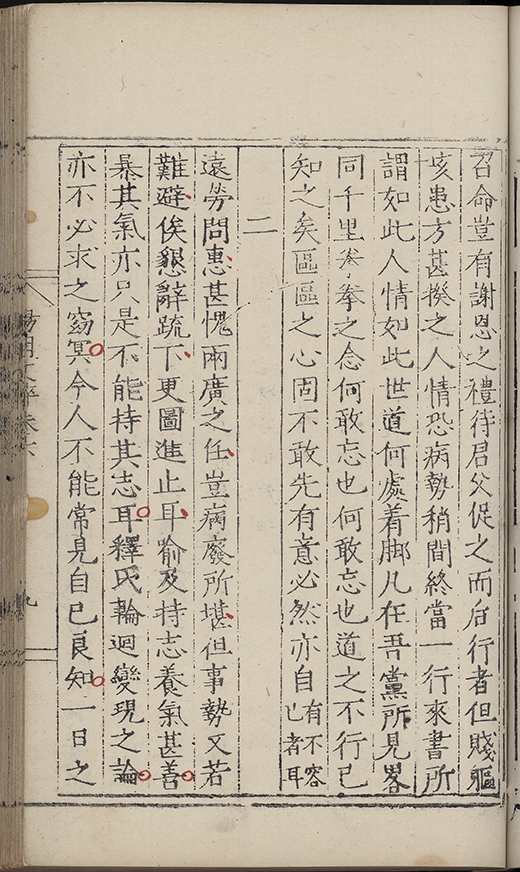 召命豈有謝恩之禮待君父促之而后行者但賤軀
咳患方甚揆之人情恐病勢稍間終當一行來書所
謂如此人情如此世道何處着脚凡在吾黨所見畧
同千里拳拳之念何敢忘也何敢忘也道之不行已
知之矣區區之心固不敢先有意必然亦自有不容已者耳
二
遠勞問惠甚愧兩廣之任豈病廢所堪但事勢又若
難避俟懇辭疏下更圖進止耳喻及持志養氣甚善
暴其氣亦只是不能持其志耳釋氏輪迴變現之論
亦不必求之窈冥今人不能常見自己良知一日之
陽明文
九